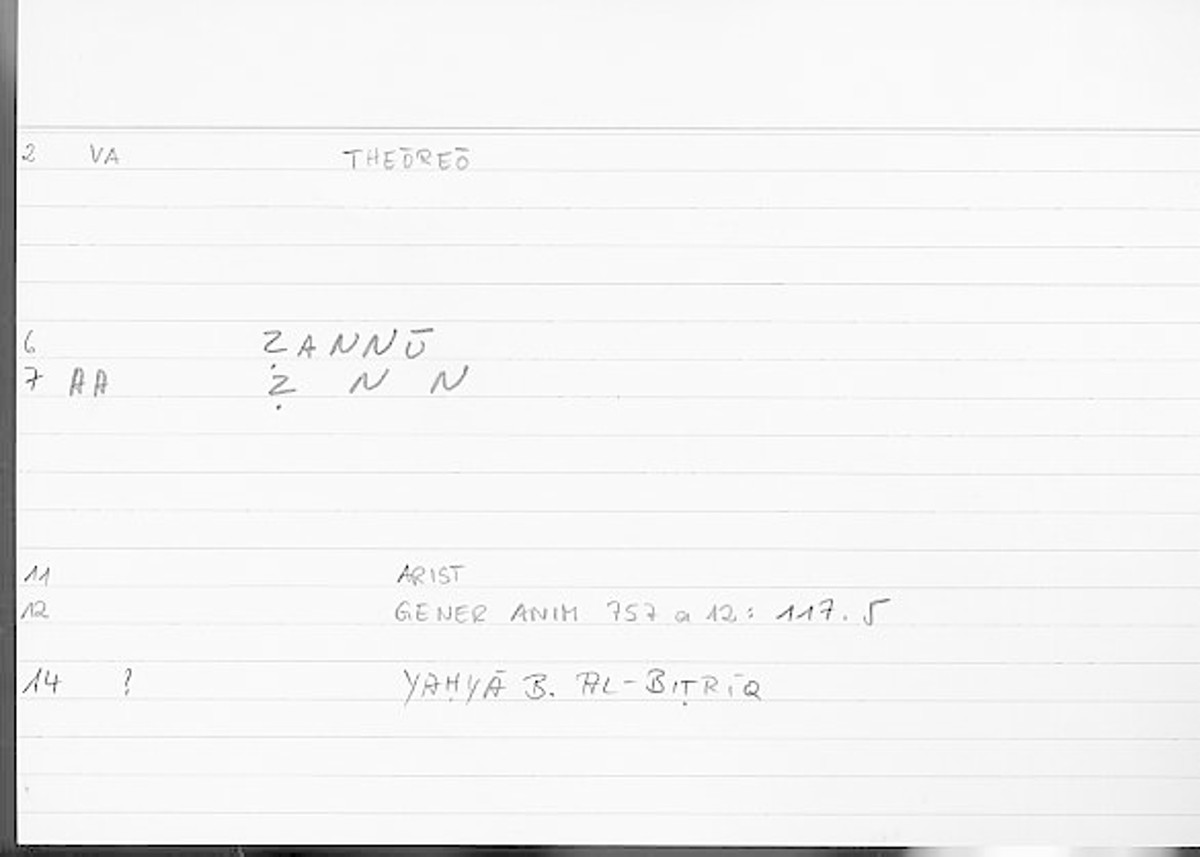 2 VA THEŌREŌ
6 ẒANNŪ
7 AA Ẓ N N
11 ARIST
12 GENER ANIM 757 a 12: 117.5
14 ? YAḤYĀ B. AL-BIṬRĪQ